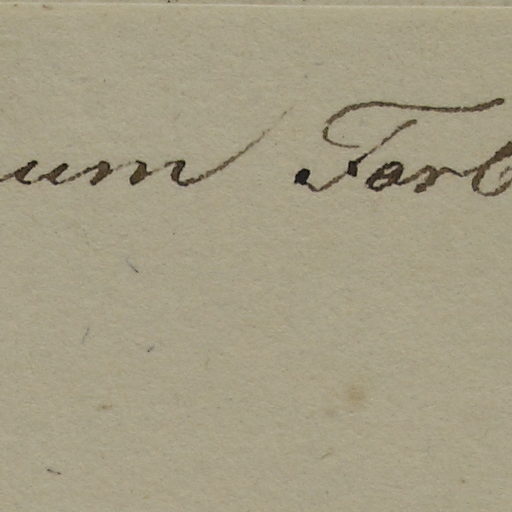 um Torb